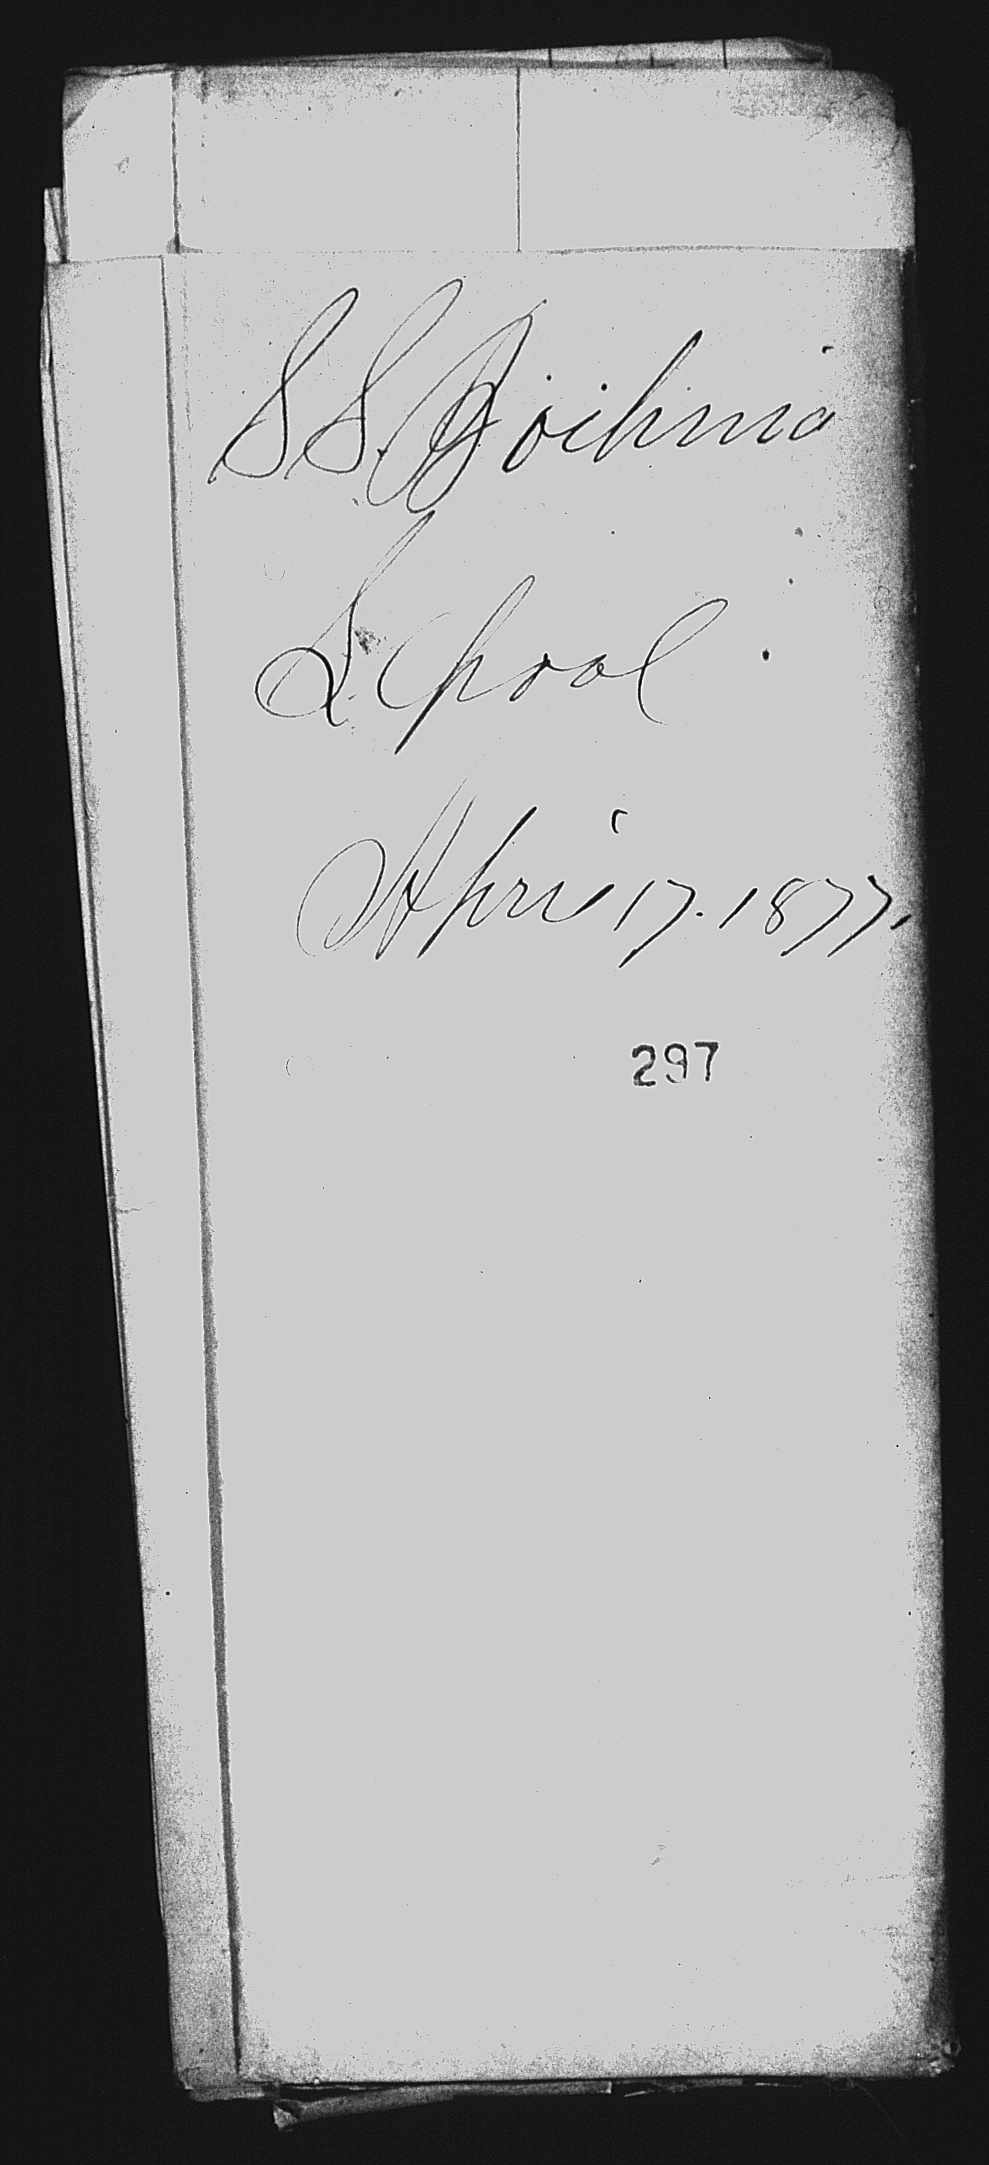 SS. Boihmia
L'pool
April 17. 1877.
297